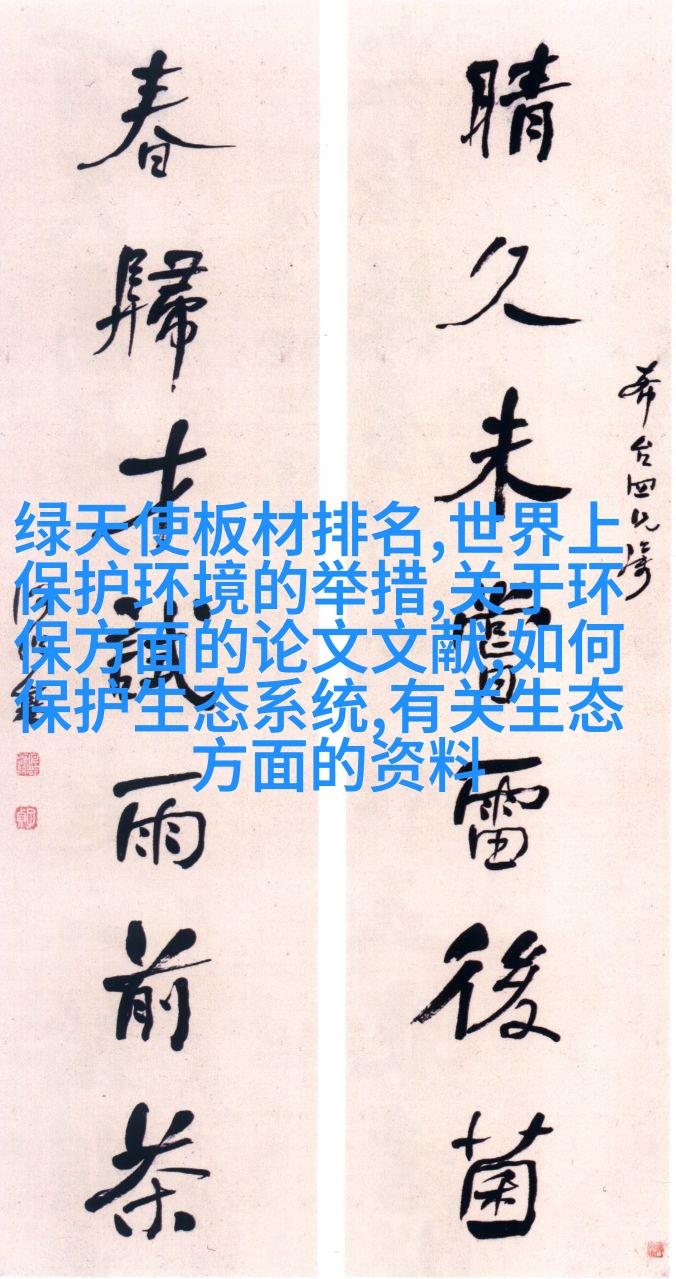 晴久未嘗雷後菌
春歸才雨前茶
绿天使板材排名,世界上
保护环境的举措,关于环
保方面的论文文献,如何
保护生态系统,有关生态
方面的资料